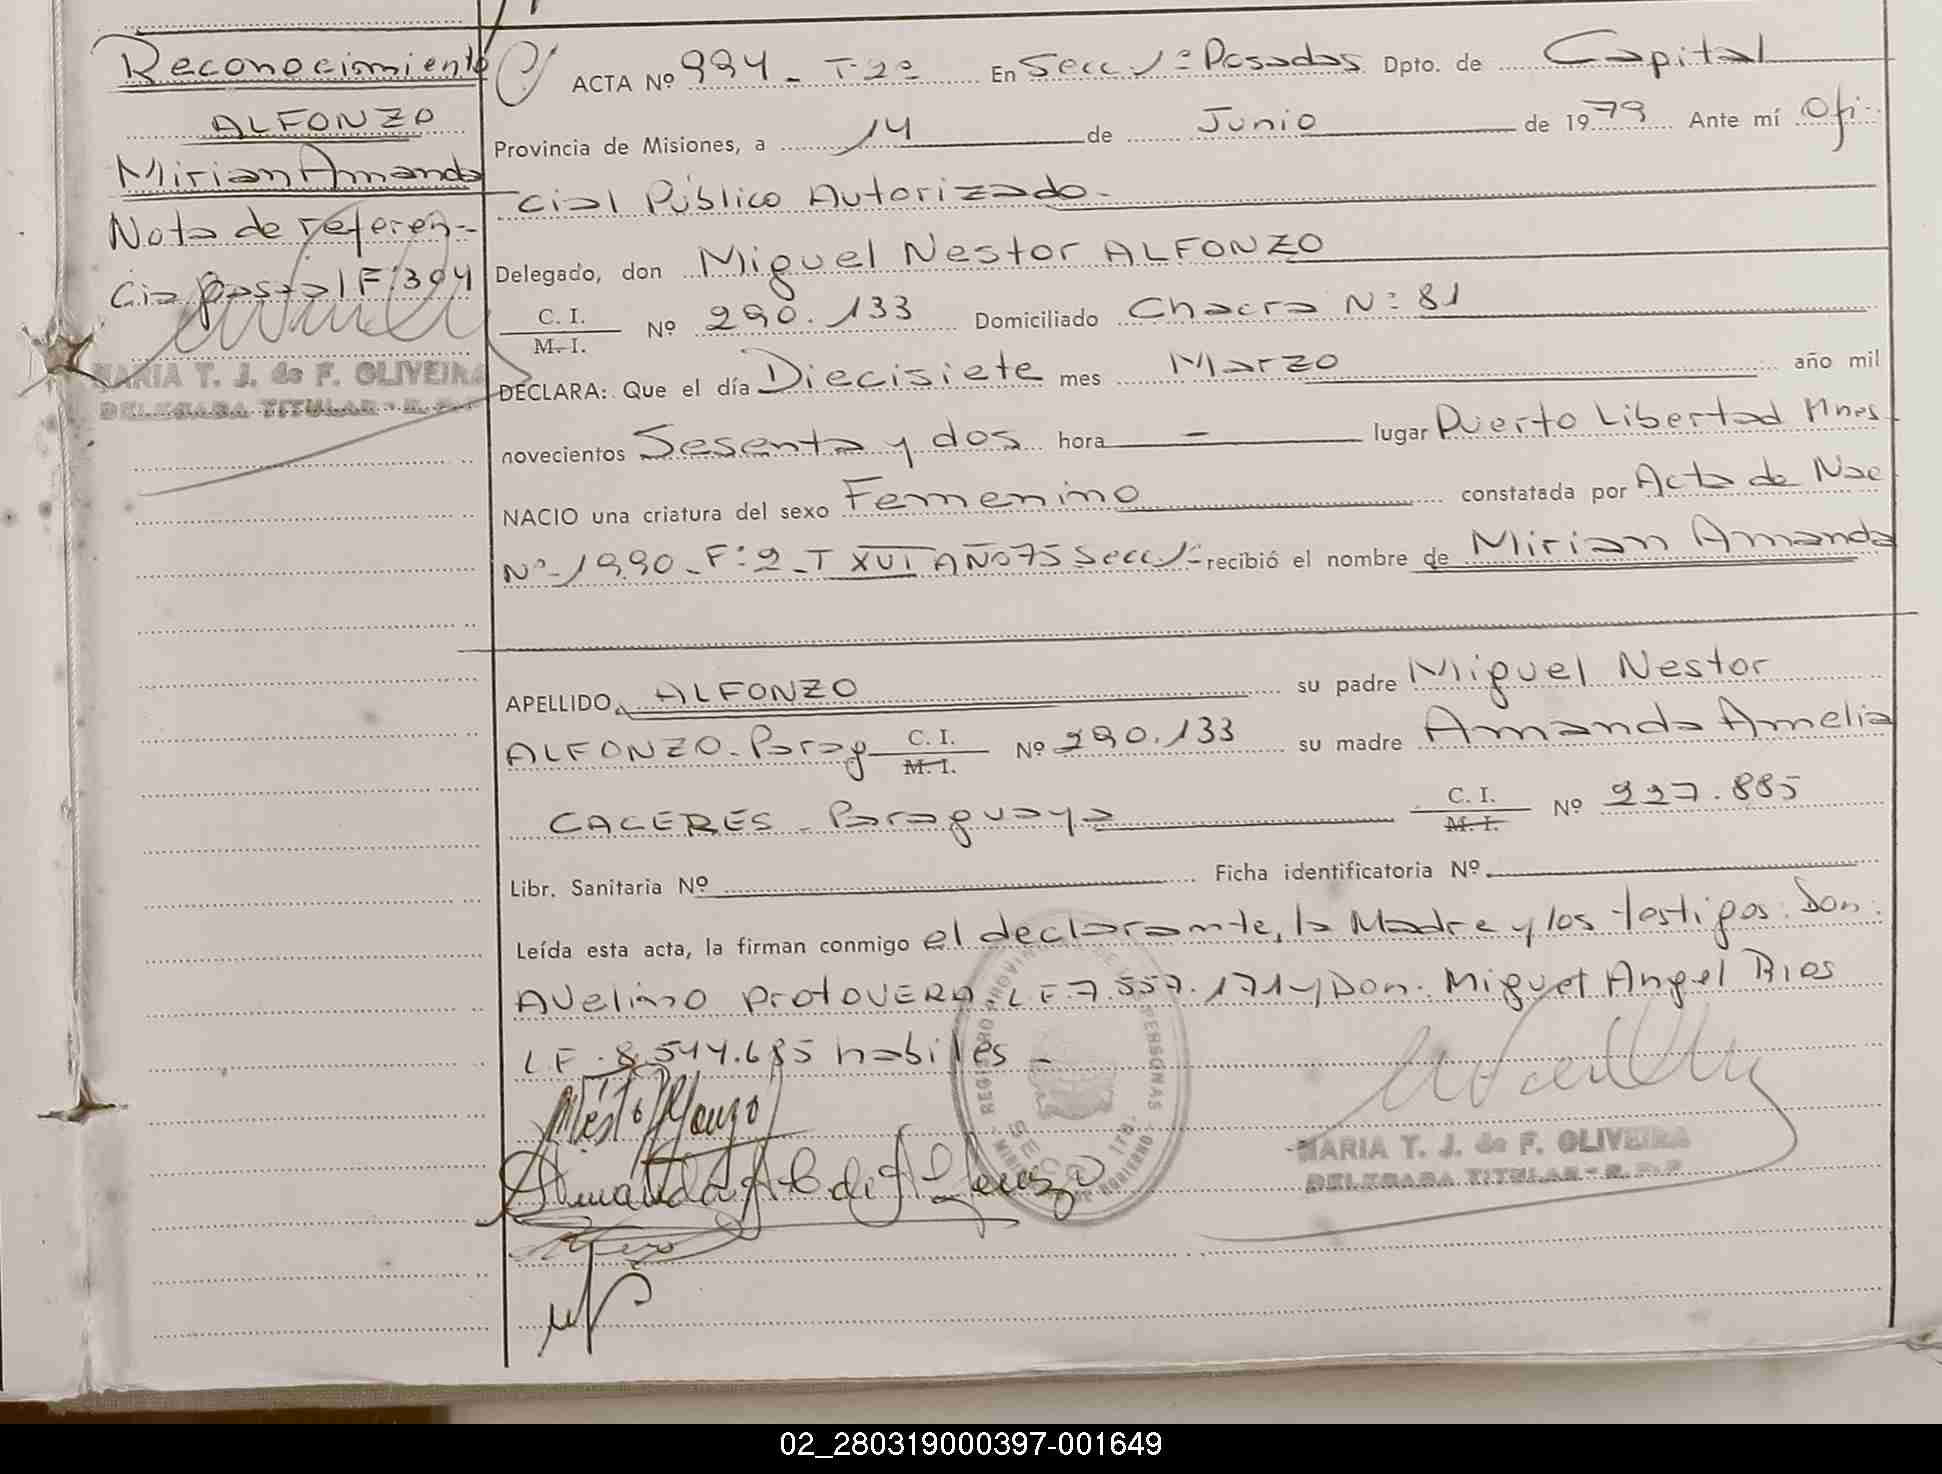 Reconocimiento
ALFONZO
Mirian Amanda
Nota de referen-
cia postal F: 394
MARIA T. J. de F. OLIVEIRA
DELEGADA TITULAR - R. P. P.
ACTA Nº 994 - T-2º En Secc 1ª Posadas Dpto. de Capital
Provincia de Misiones, a 14 de Junio de 1979 Ante mí Ofi-
cial Público Autorizado-
Delegado, don Miguel Nestor ALFONZO
C. I.
M. I. Nº 290.133 Domiciliado Chacra Nº 81
DECLARA: Que el día Diecisiete mes Marzo año mil
novecientos Sesenta y dos hora - lugar Puerto Libertad Mnes
NACIO una criatura del sexo Femenino constatada por Acta de Nac
Nº 1990 - F: 2 - T XVI AÑO 75 Secc 1ª recibió el nombre de Mirian Amanda
APELLIDO ALFONZO su padre Miguel Nestor
ALFONZO - Parag C. I. M. I. Nº 290.133 su madre Amanda Amelia
CACERES - Paraguaya C. I. M. I. Nº 227.885
Libr. Sanitaria Nº Ficha identificatoria Nº
Leída esta acta, la firman conmigo el declarante, la Madre y los testigos: Don:
Avelino ProtoVERA. L E 7.557.171 y Don. Miguel Angel Rios
L.E. 8.544.685 habiles -
Nestor Alfonzo
Amanda A C de Alfonzo
REGISTRO PROVINCIAL DE PERSONAS
MARIA T. J. de F. OLIVEIRA
DELEGADA TITULAR - R. P. P.
02_280319000397-001649